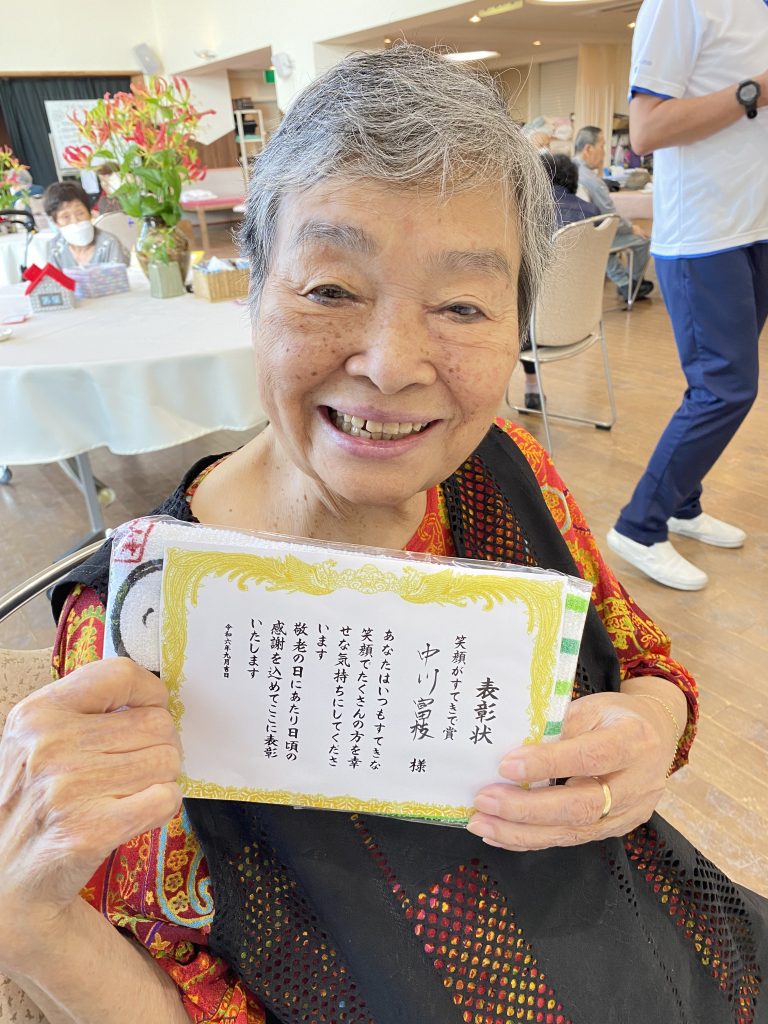 表彰状
笑顔がすてきで賞
中川富枝 様
あなたはいつもすてきな
笑顔でたくさんの方を幸
せな気持ちにしてくださ
います
敬老の日にあたり日頃の
感謝を込めてここに表彰
いたします
令和六年九月吉日